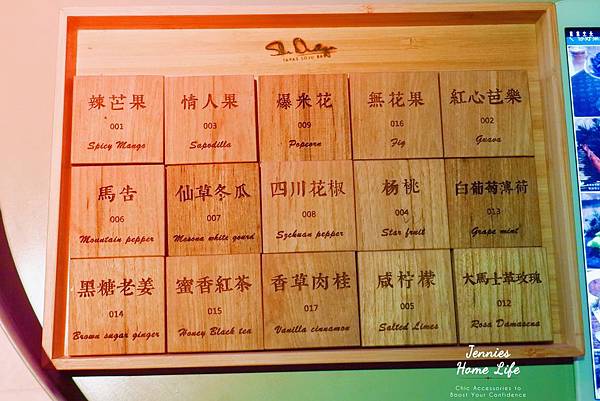 TAPAS SOJU BAR
辣芒果
001
Spicy Mango
情人果
003
Sapodilla
爆米花
009
Popcorn
無花果
016
Fig
紅心芭樂
002
Guava
馬告
006
Mountain pepper
仙草冬瓜
007
Mesona white gourd
四川花椒
008
Szchuan pepper
杨桃
004
Star fruit
白葡萄薄荷
013
Grape mint
黑糖老姜
014
Brown sugar ginger
蜜香紅茶
015
Honey Black tea
香草肉桂
017
Vanilla cinnamon
咸柠檬
005
Salted Limes
大馬士革玫瑰
012
Rosa Damascena
Jennies
Home Life
Chic Accessories to
Boost Your Confidence